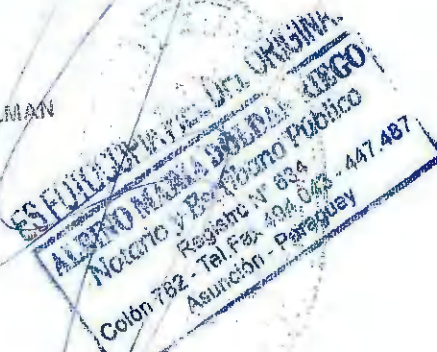 MAN
ES FOTOCOPIA FIEL DEL ORIGINAL
MARIA
Notario y Escribano Público
Registro N° 634
Colón 782 - Tel.Fax 494.043 - 447.487
Asunción - Paraguay